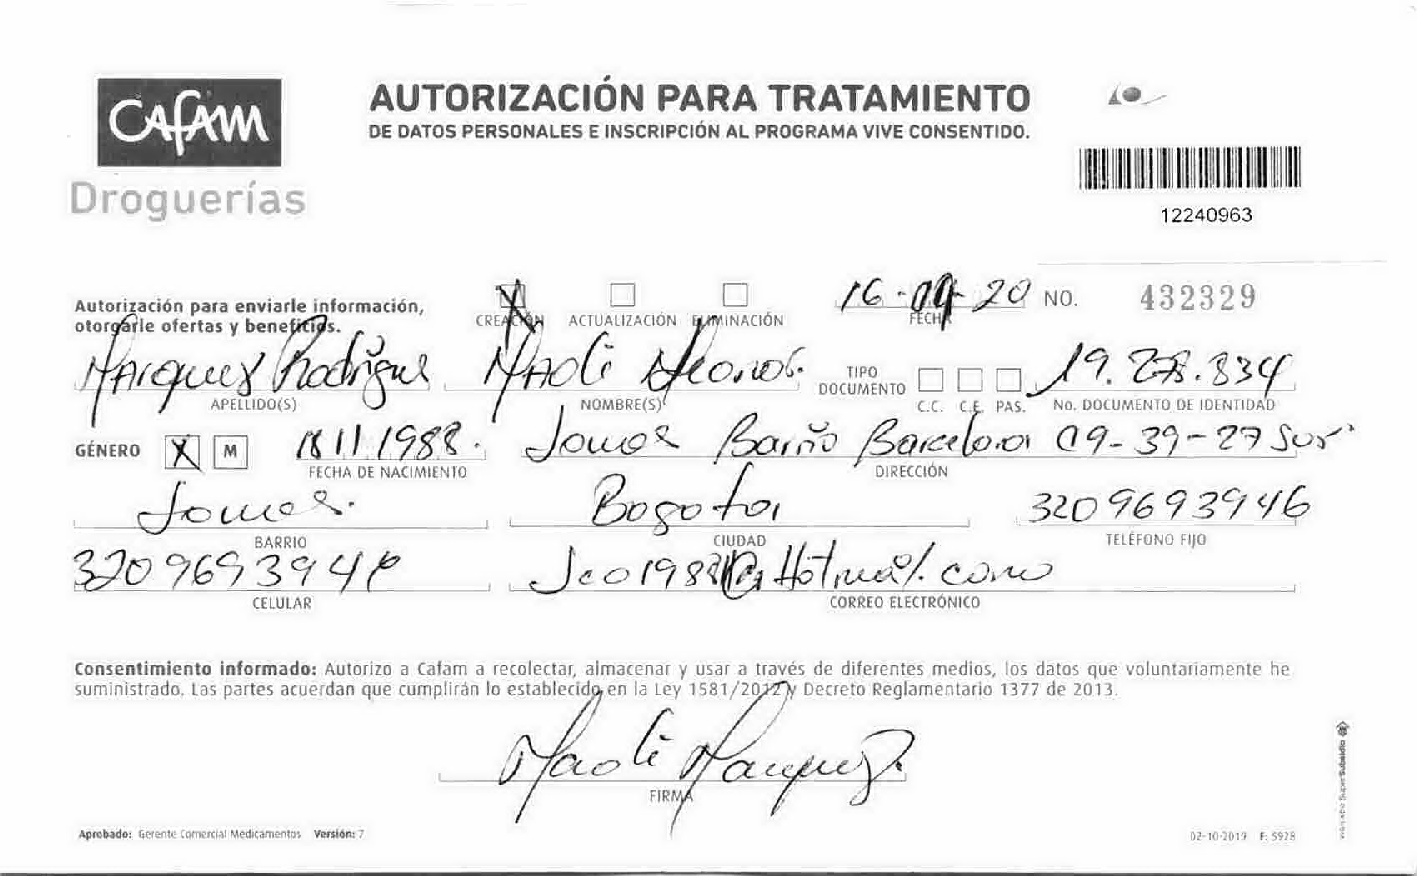 CAFAM
Droguerías
AUTORIZACIÓN PARA TRATAMIENTO
DE DATOS PERSONALES E INSCRIPCIÓN AL PROGRAMA VIVE CONSENTIDO.
12240963
Autorización para enviarle información,
otorgarle ofertas y beneficios.
X CREACIÓN ACTUALIZACIÓN ELIMINACIÓN
16-09-20
FECHA
NO. 432329
Marquez Rodrigue
APELLIDO(S)
Maoli
NOMBRE(S)
TIPO DOCUMENTO
C.C. C.E. PAS.
19.278.334
No. DOCUMENTO DE IDENTIDAD
GÉNERO X M
18 11 1988.
FECHA DE NACIMIENTO
Barrio Barcelona 19-39-27 Sur
DIRECCIÓN
BARRIO
Bogota
CIUDAD
3209693946
TELÉFONO FIJO
320969394
CELULAR
Jco1988@Hotmail.com
CORREO ELECTRÓNICO
Consentimiento informado: Autorizo a Cafam a recolectar, almacenar y usar a través de diferentes medios, los datos que voluntariamente he
suministrado. Las partes acuerdan que cumplirán lo establecido en la Ley 1581/2012 y Decreto Reglamentario 1377 de 2013.
Maoli Marquez
FIRMA
Aprobado: Gerente Comercial Medicamentos Versión: 7
02-10-2019 F: 5928
Vigilado SuperSubsidio